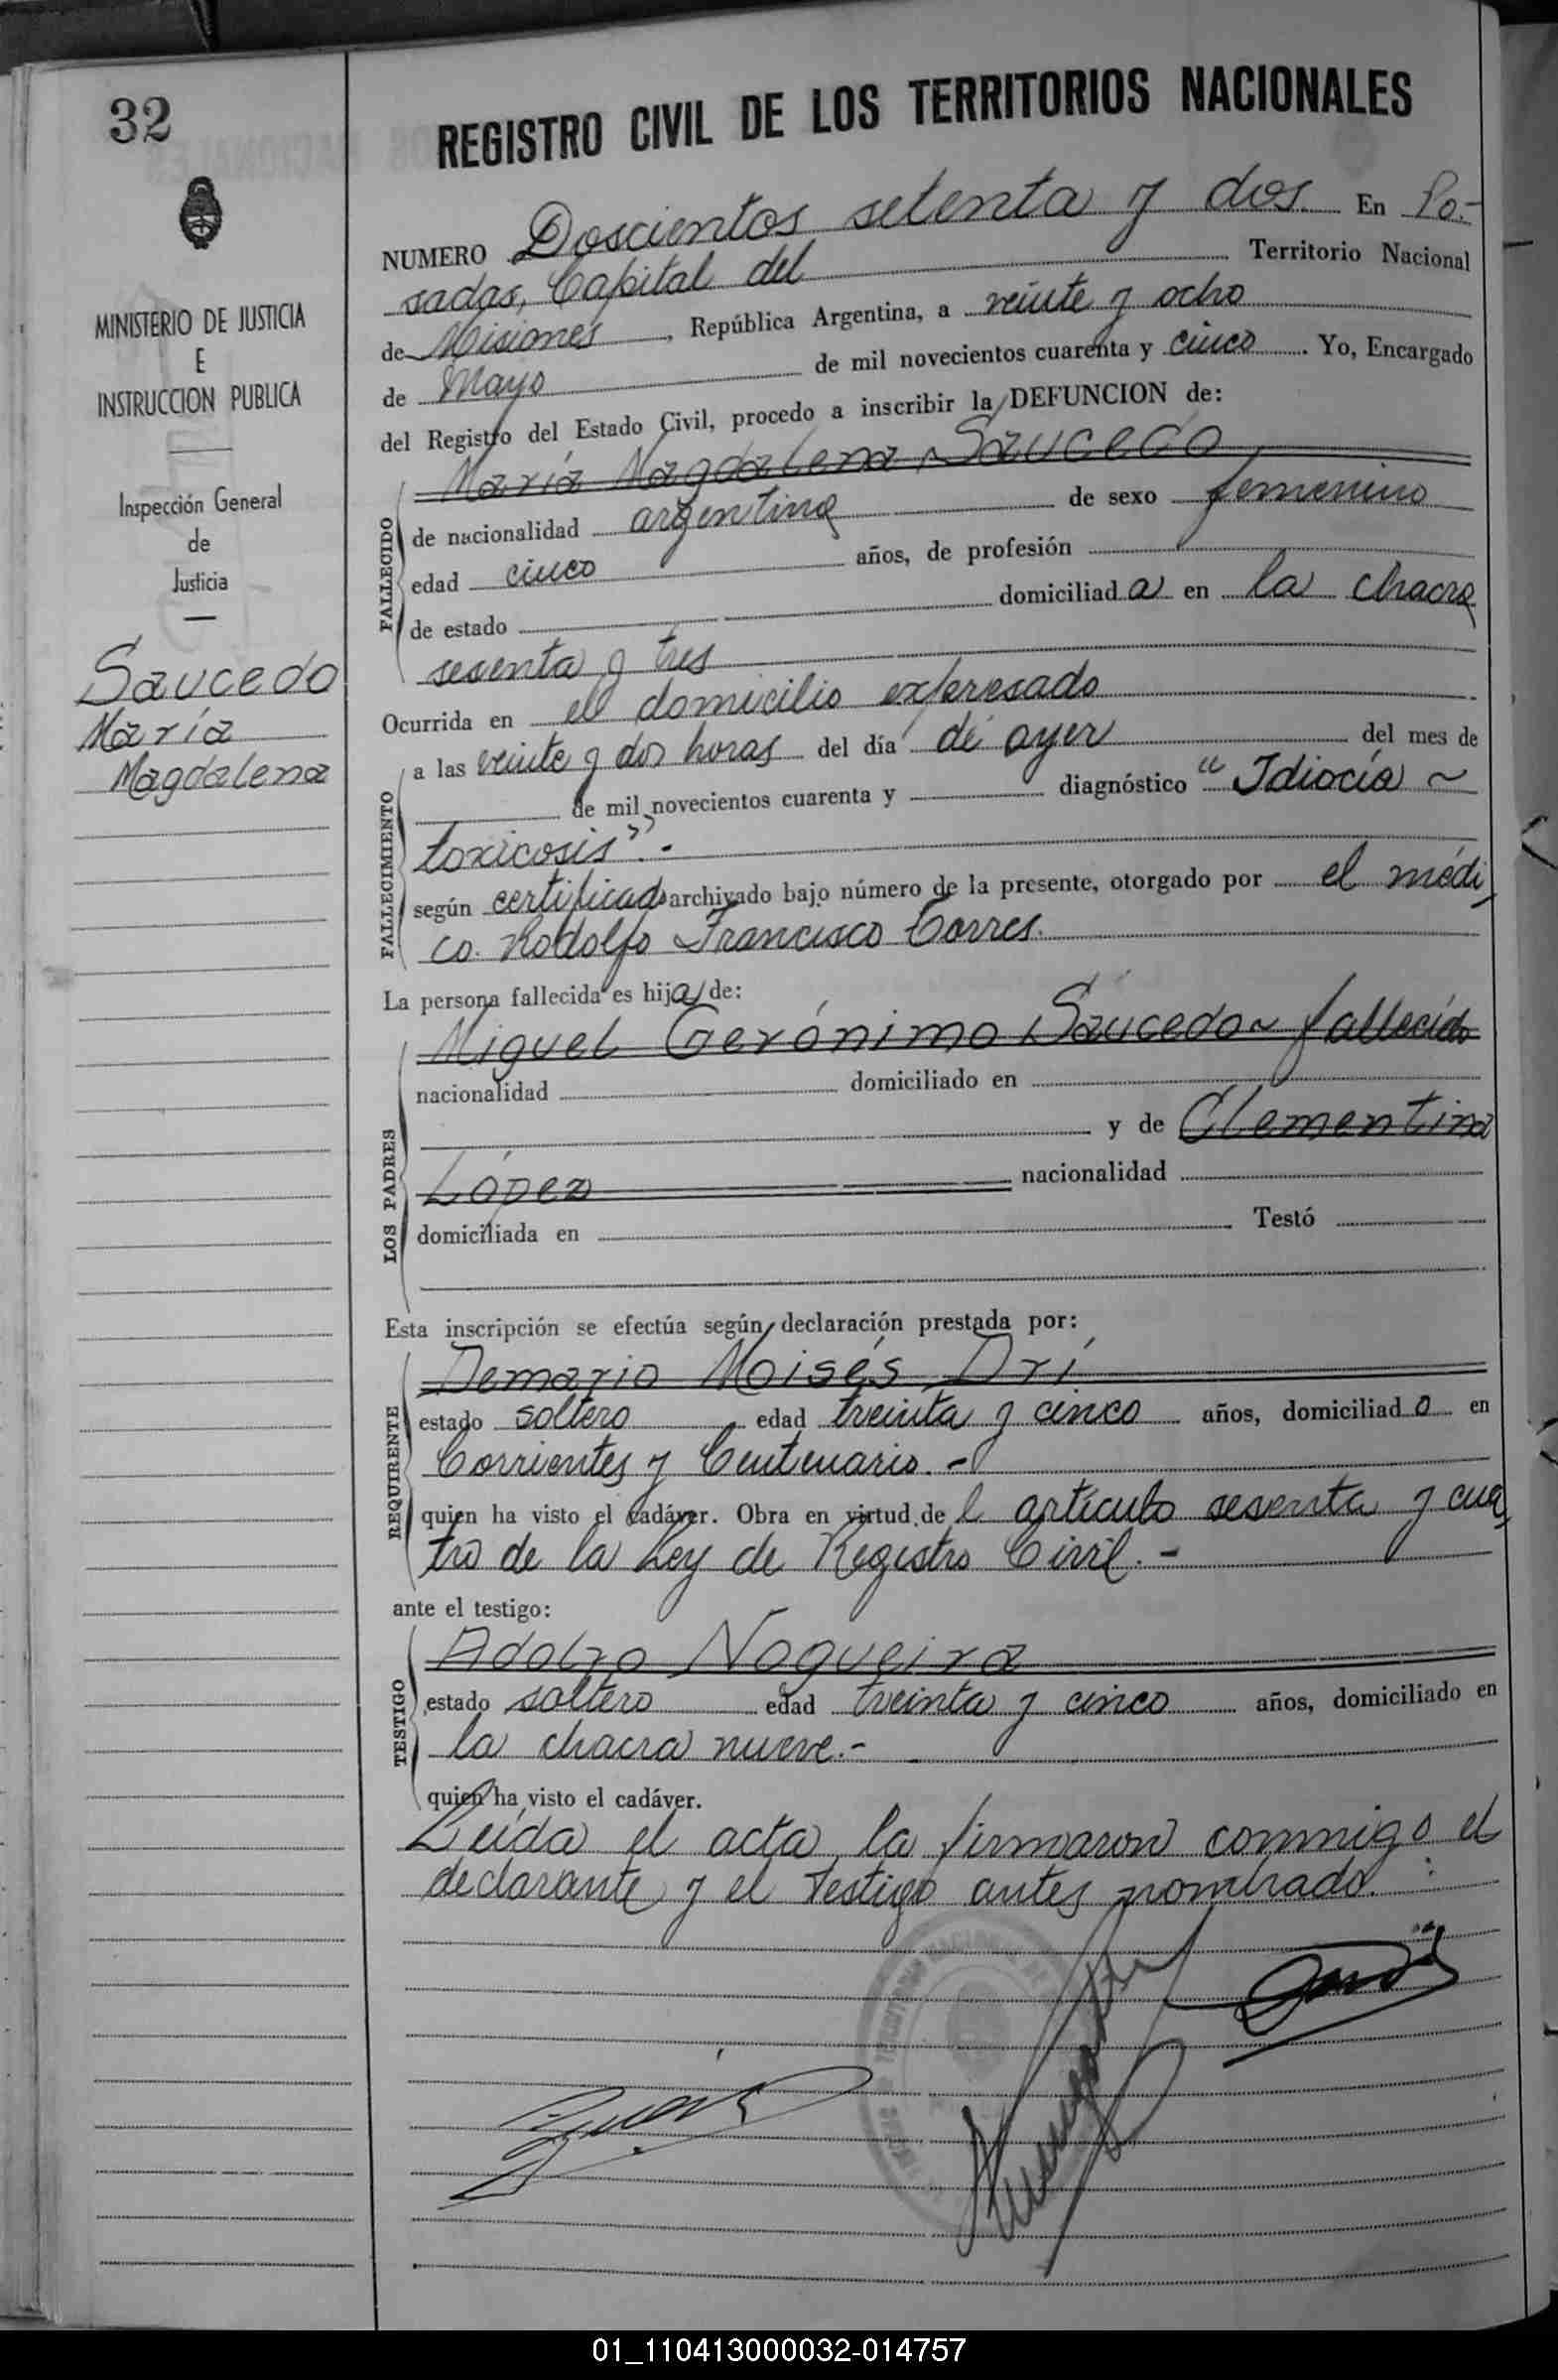 32
MINISTERIO DE JUSTICIA
E
INSTRUCCION PUBLICA
Inspección General
de
Justicia
Saucedo
María
Magdalena
REGISTRO CIVIL DE LOS TERRITORIOS NACIONALES
NUMERO Doscientos setenta y dos En Po-
sadas, Capital del Territorio Nacional
de Misiones, República Argentina, a veinte y ocho
de Mayo de mil novecientos cuarenta y cinco. Yo, Encargado
del Registro del Estado Civil, procedo a inscribir la DEFUNCION de:
María Magdalena Saucedo
FALLECIDO
de nacionalidad argentina de sexo femenino
edad cinco años, de profesión
de estado domiciliada en la chacra
sesenta y tres
Ocurrida en el domicilio expresado
FALLECIMIENTO
a las veinte y dos horas del día de ayer del mes de
de mil novecientos cuarenta y diagnóstico "Idiocía ~
toxicosis".-
según certificado archivado bajo número de la presente, otorgado por el médi
co. Rodolfo Francisco Torres.
La persona fallecida es hija de:
LOS PADRES
Miguel Gerónimo Saucedo ~ fallecido
nacionalidad domiciliado en
y de Clementina
López nacionalidad
domiciliada en Testó
Esta inscripción se efectúa según declaración prestada por:
REQUIRENTE
Demario Moisés Dri
estado soltero edad treinta y cinco años, domiciliado en
Corrientes y Centenario.-
quien ha visto el cadáver. Obra en virtud de l artículo sesenta y cua
tro de la Ley de Registro Civil.-
ante el testigo:
TESTIGO
Adolfo Nogueira
estado soltero edad treinta y cinco años, domiciliado en
la chacra nueve.-
quien ha visto el cadáver.
Leída el acta, la firmaron conmigo el
declarante y el testigo antes nombrado.
01_110413000032-014757